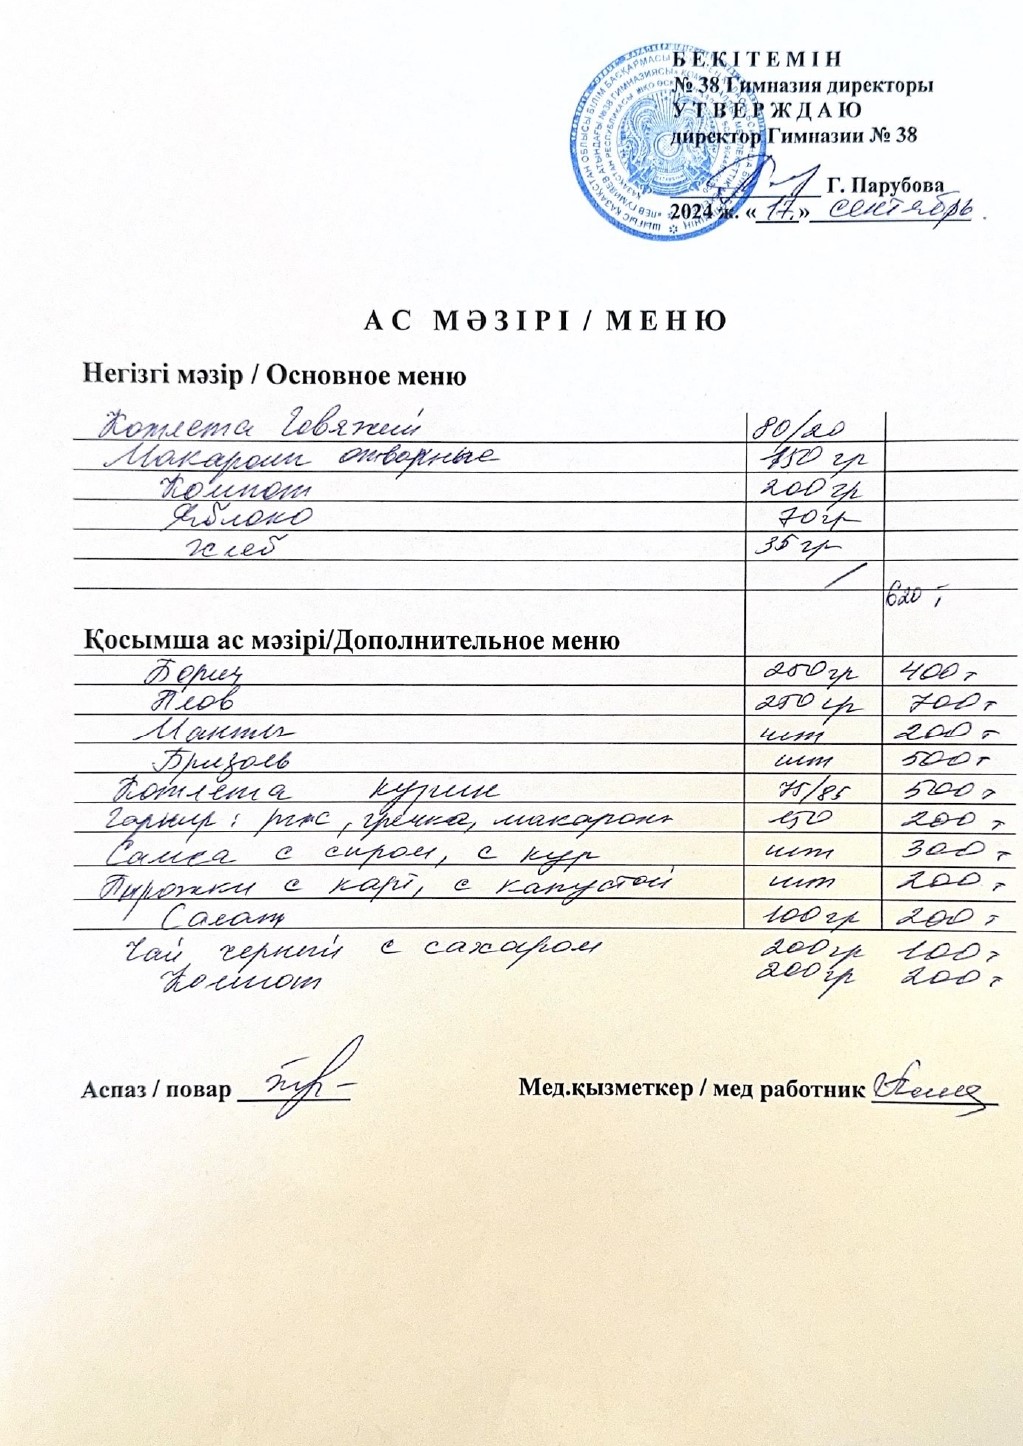 БЕКІТЕМІН
№ 38 Гимназия директоры
УТВЕРЖДАЮ
директор Гимназии № 38
Г. Парубова
2024 ж. «17» сентябрь
АС МӘЗІРІ / МЕНЮ
Негізгі мәзір / Основное меню
Котлета Говяжий 80/20
Макароны отворные 150 гр
Компот 200 гр
Яблоко 70 гр
Хлеб 35 гр
620 т
Қосымша ас мәзірі/Дополнительное меню
Борщ 250 гр 400 т
Плов 250 гр 700 т
Манты шт 200 т
Бризоль шт 500 т
Котлета курин 75/85 500 т
Гарнир: рис, гречка, макароны 150 200 т
Самса с сыром, с кур шт 300 т
Пирожки с карт, с капустой шт 200 т
Салат 100 гр 200 т
Чай черный с сахаром 200 гр 100 т
Компот 200 гр 200 т
Аспаз / повар
Мед.қызметкер / мед работник